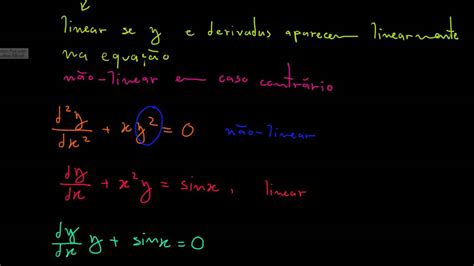 linear se y e derivadas aparecem linearmente
na equação
não-linear em caso contrário
d²y/dx² + x y² = 0 não-linear
dy/dx + x²y = sinx, linear
dy/dx y + sinx = 0